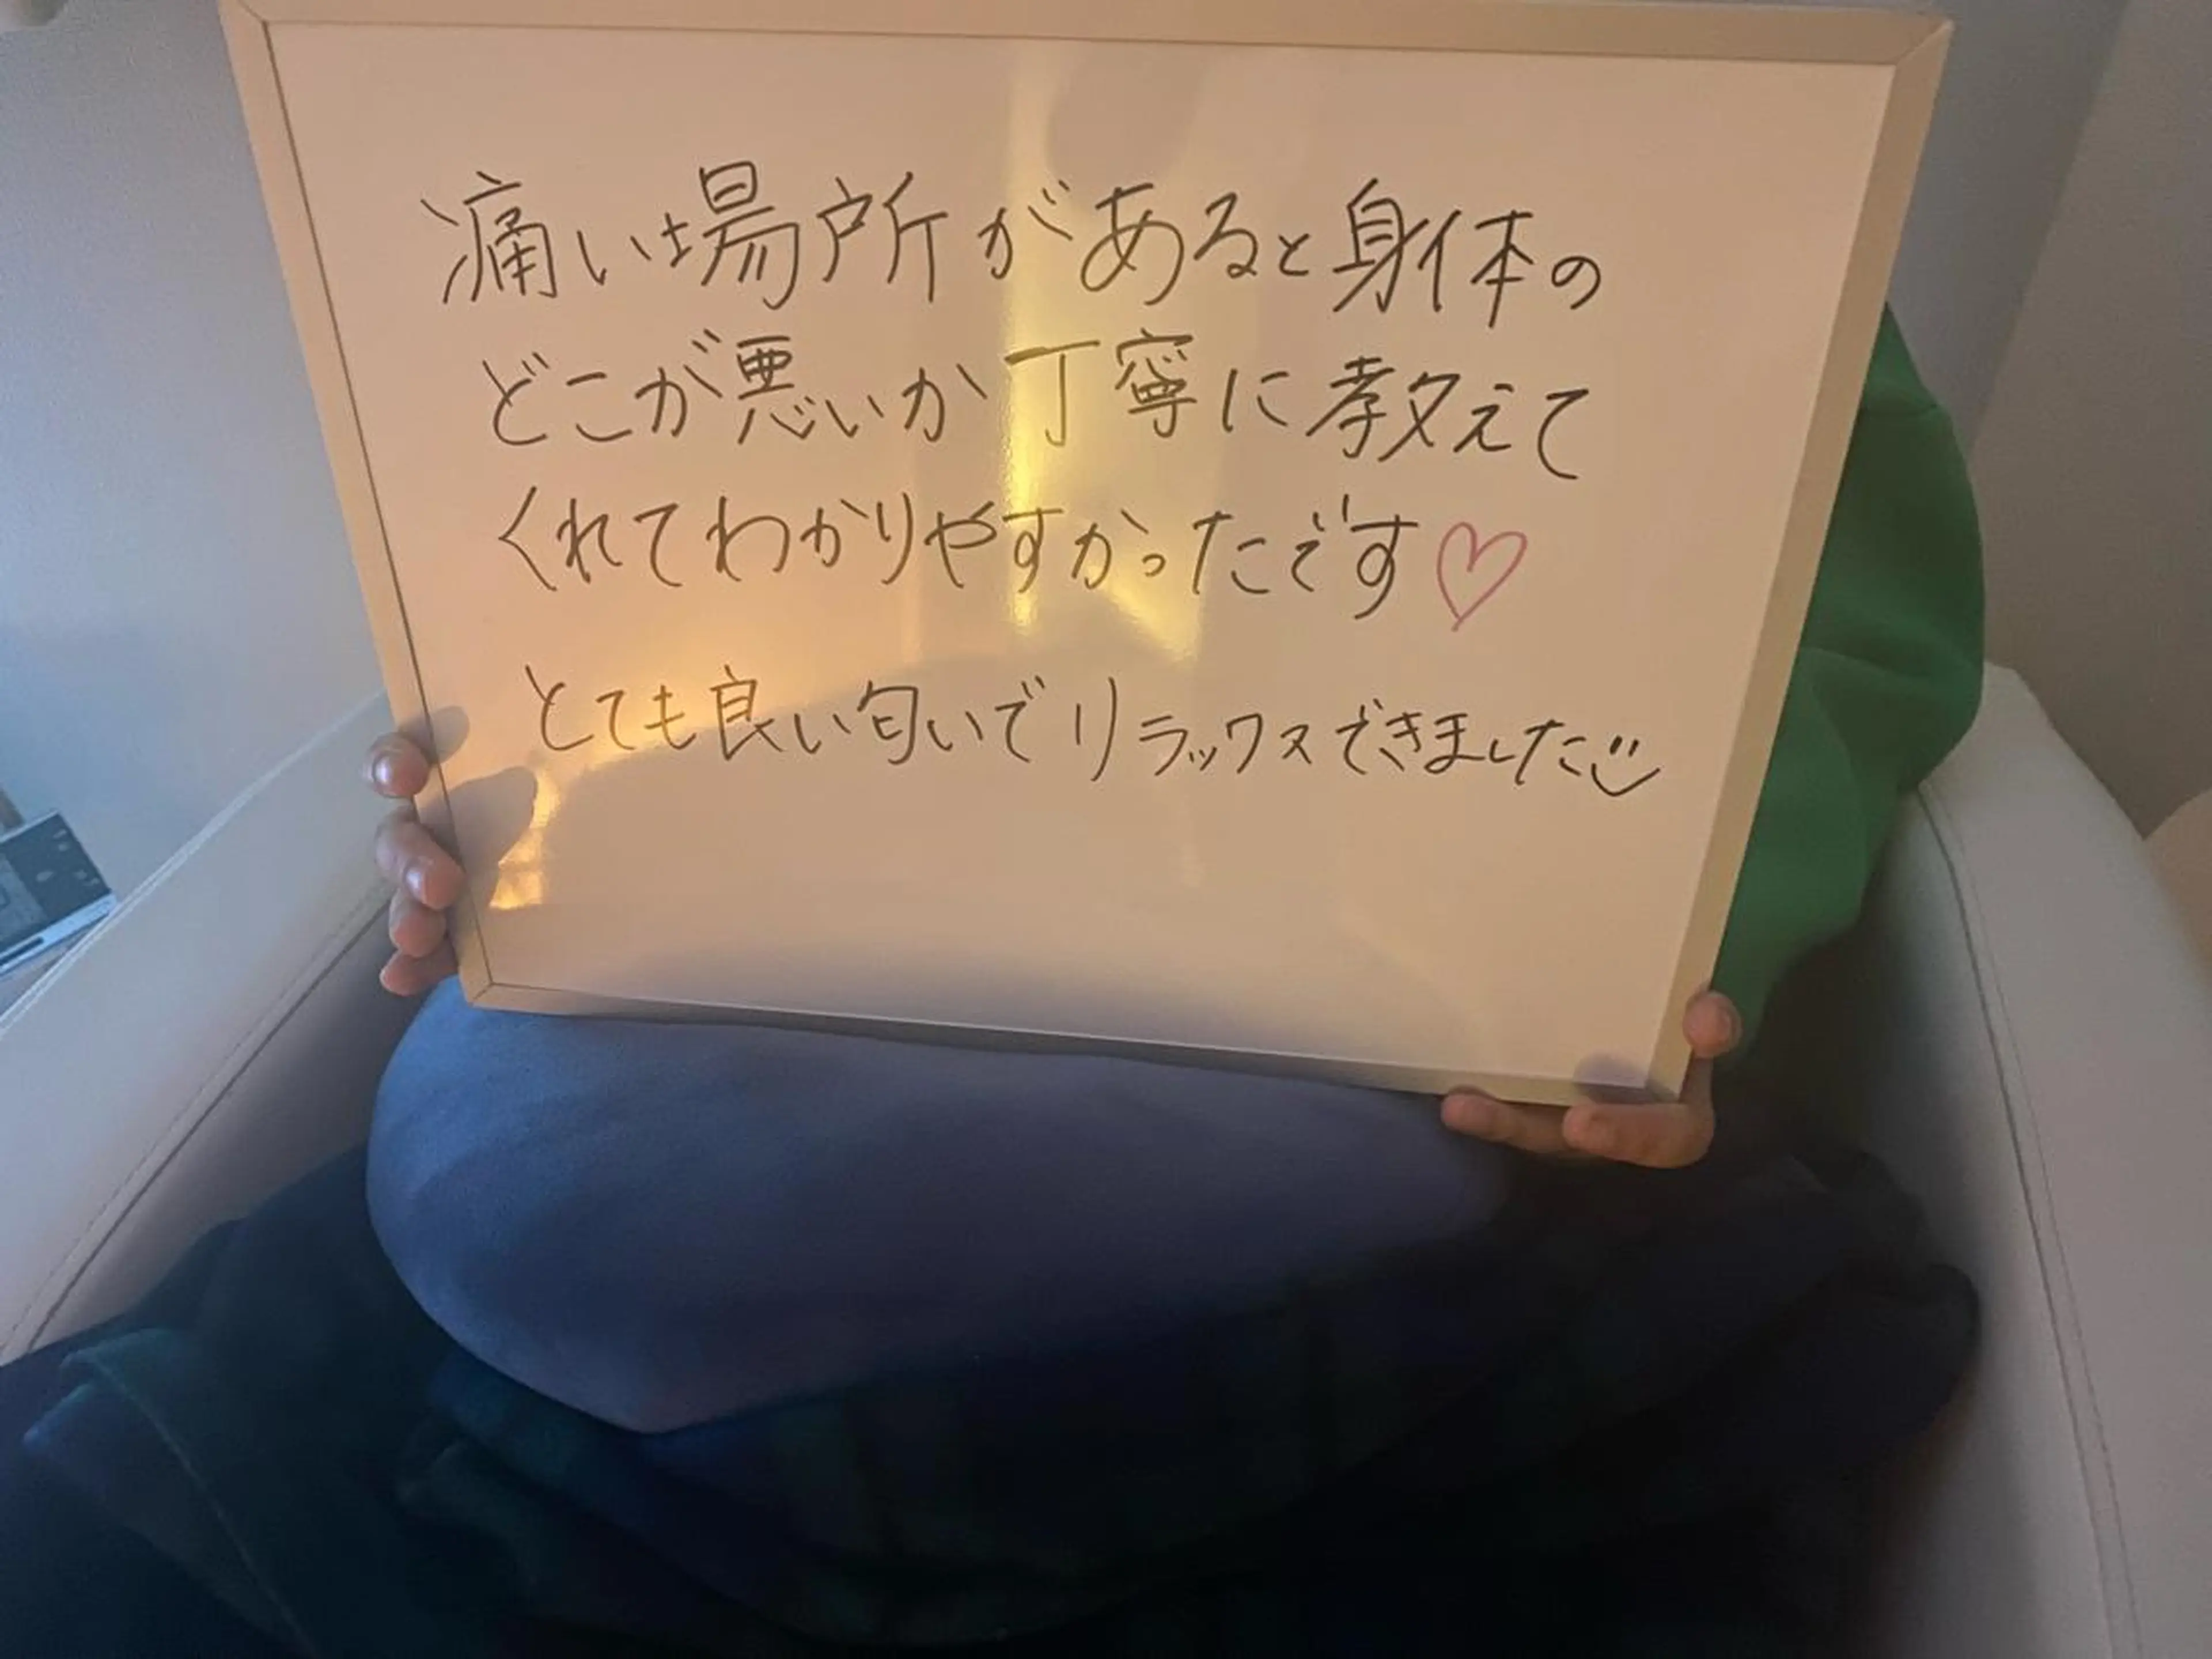 痛い場所があると身体の
どこが悪いか丁寧に教えて
くれてわかりやすかったです♡
とても良い匂いでリラックスできました